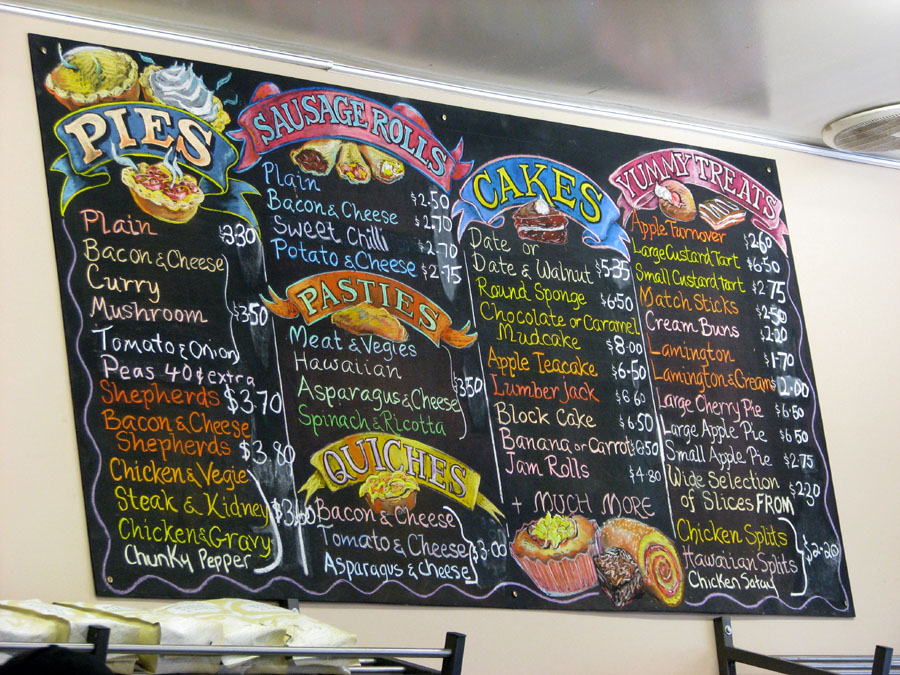 PIES
Plain $3.30
Bacon & Cheese
Curry
Mushroom $3.50
Tomato & Onion
Peas 40¢ extra
Shepherds $3.70
Bacon & Cheese
Shepherds $3.80
Chicken & Vegie
Steak & Kidney
Chicken & Gravy
Chunky Pepper
SAUSAGE ROLLS
Plain $2.50
Bacon & Cheese $2.70
Sweet Chilli $2.70
Potato & Cheese $2.75
PASTIES
Meat & Vegies
Hawaiian
Asparagus & Cheese $3.50
Spinach & Ricotta
QUICHES
Bacon & Cheese
Tomato & Cheese $3.00
Asparagus & Cheese
CAKES
Date or
Date & Walnut $5.35
Round Sponge $6.50
Chocolate or Caramel
Mudcake $8.00
Apple Teacake $6.50
Lumberjack $6.60
Block Cake $6.50
Banana or Carrot $6.50
Jam Rolls $4.80
+ MUCH MORE
YUMMY TREATS
Apple Turnover $2.60
Large Custard Tart $6.50
Small Custard Tart $2.75
Match Sticks $2.50
Cream Buns $2.20
Lamington $1.70
Lamington & Cream $2.00
Large Cherry Pie $6.50
Large Apple Pie $6.50
Small Apple Pie $2.75
Wide Selection
of Slices FROM $2.20
Chicken Splits
Hawaiian Splits $2.20
Chicken Satay